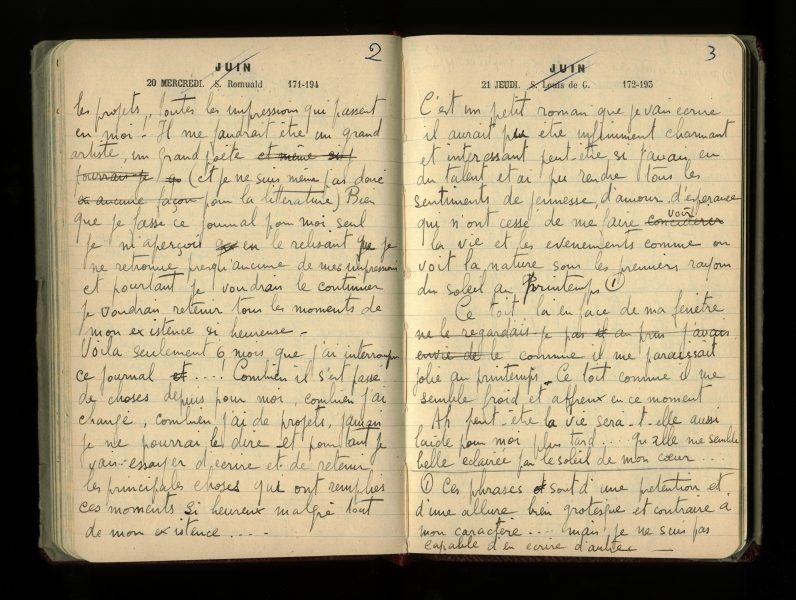 2
JUIN
20 MERCREDI. S. Romuald 171-194
les projets, toutes les impressions qui passent
en moi - Il me faudrait être un grand
artiste, un grand poète et même si
pourrais-je (et je ne suis même pas douée
en aucune façon pour la littérature) Bien
que je fasse ce journal pour moi seul
je m'aperçois en le relisant que je
ne retrouve presqu'aucune de mes impressions
et pourtant je voudrais le continuer
je voudrais retenir tous les moments de
mon existence si heureuse -
Voila seulement 6 mois que j'ai interrompu
ce journal et .... ! Combien il s'est passé
de choses depuis pour moi, combien j'ai
changé, combien j'ai de projets, jamais
je ne pourrai le dire et pourtant je
vais essayer d'écrire et de retenir
les principales choses qui ont remplies
ces moments si heureux malgré tout
de mon existence .....
3
JUIN
21 JEUDI. S. Louis de G. 172-193
C'est un petit roman que je vais ecrire
il aurait pu etre infiniment charmant
et interessant peut-être si j'avais eu
du talent et ai pu rendre tous les
sentiments de jeunesse, d'amour, d'esperance
qui n'ont cessé de me faire considerer voir
la vie et les evenements comme on
voit la nature sous les premiers rayons
du soleil au Printemps ①
Ce toit là en face de ma fenêtre
ne le regardais-je pas et au pus j'avais
envie de le comme il me paraissait
jolie au printemps - Ce toit comme il me
semble froid et affreux en ce moment
Ah peut-être la vie sera-t-elle aussi
laide pour moi plus tard .... qu'elle me semble
belle eclairée par le soleil de mon cœur ...
① Ces phrases et sont d'une pretention et
d'une allure bien grotesque et contraire à
mon caractère .... mais je ne suis pas
capable d'en ecrire d'autres —